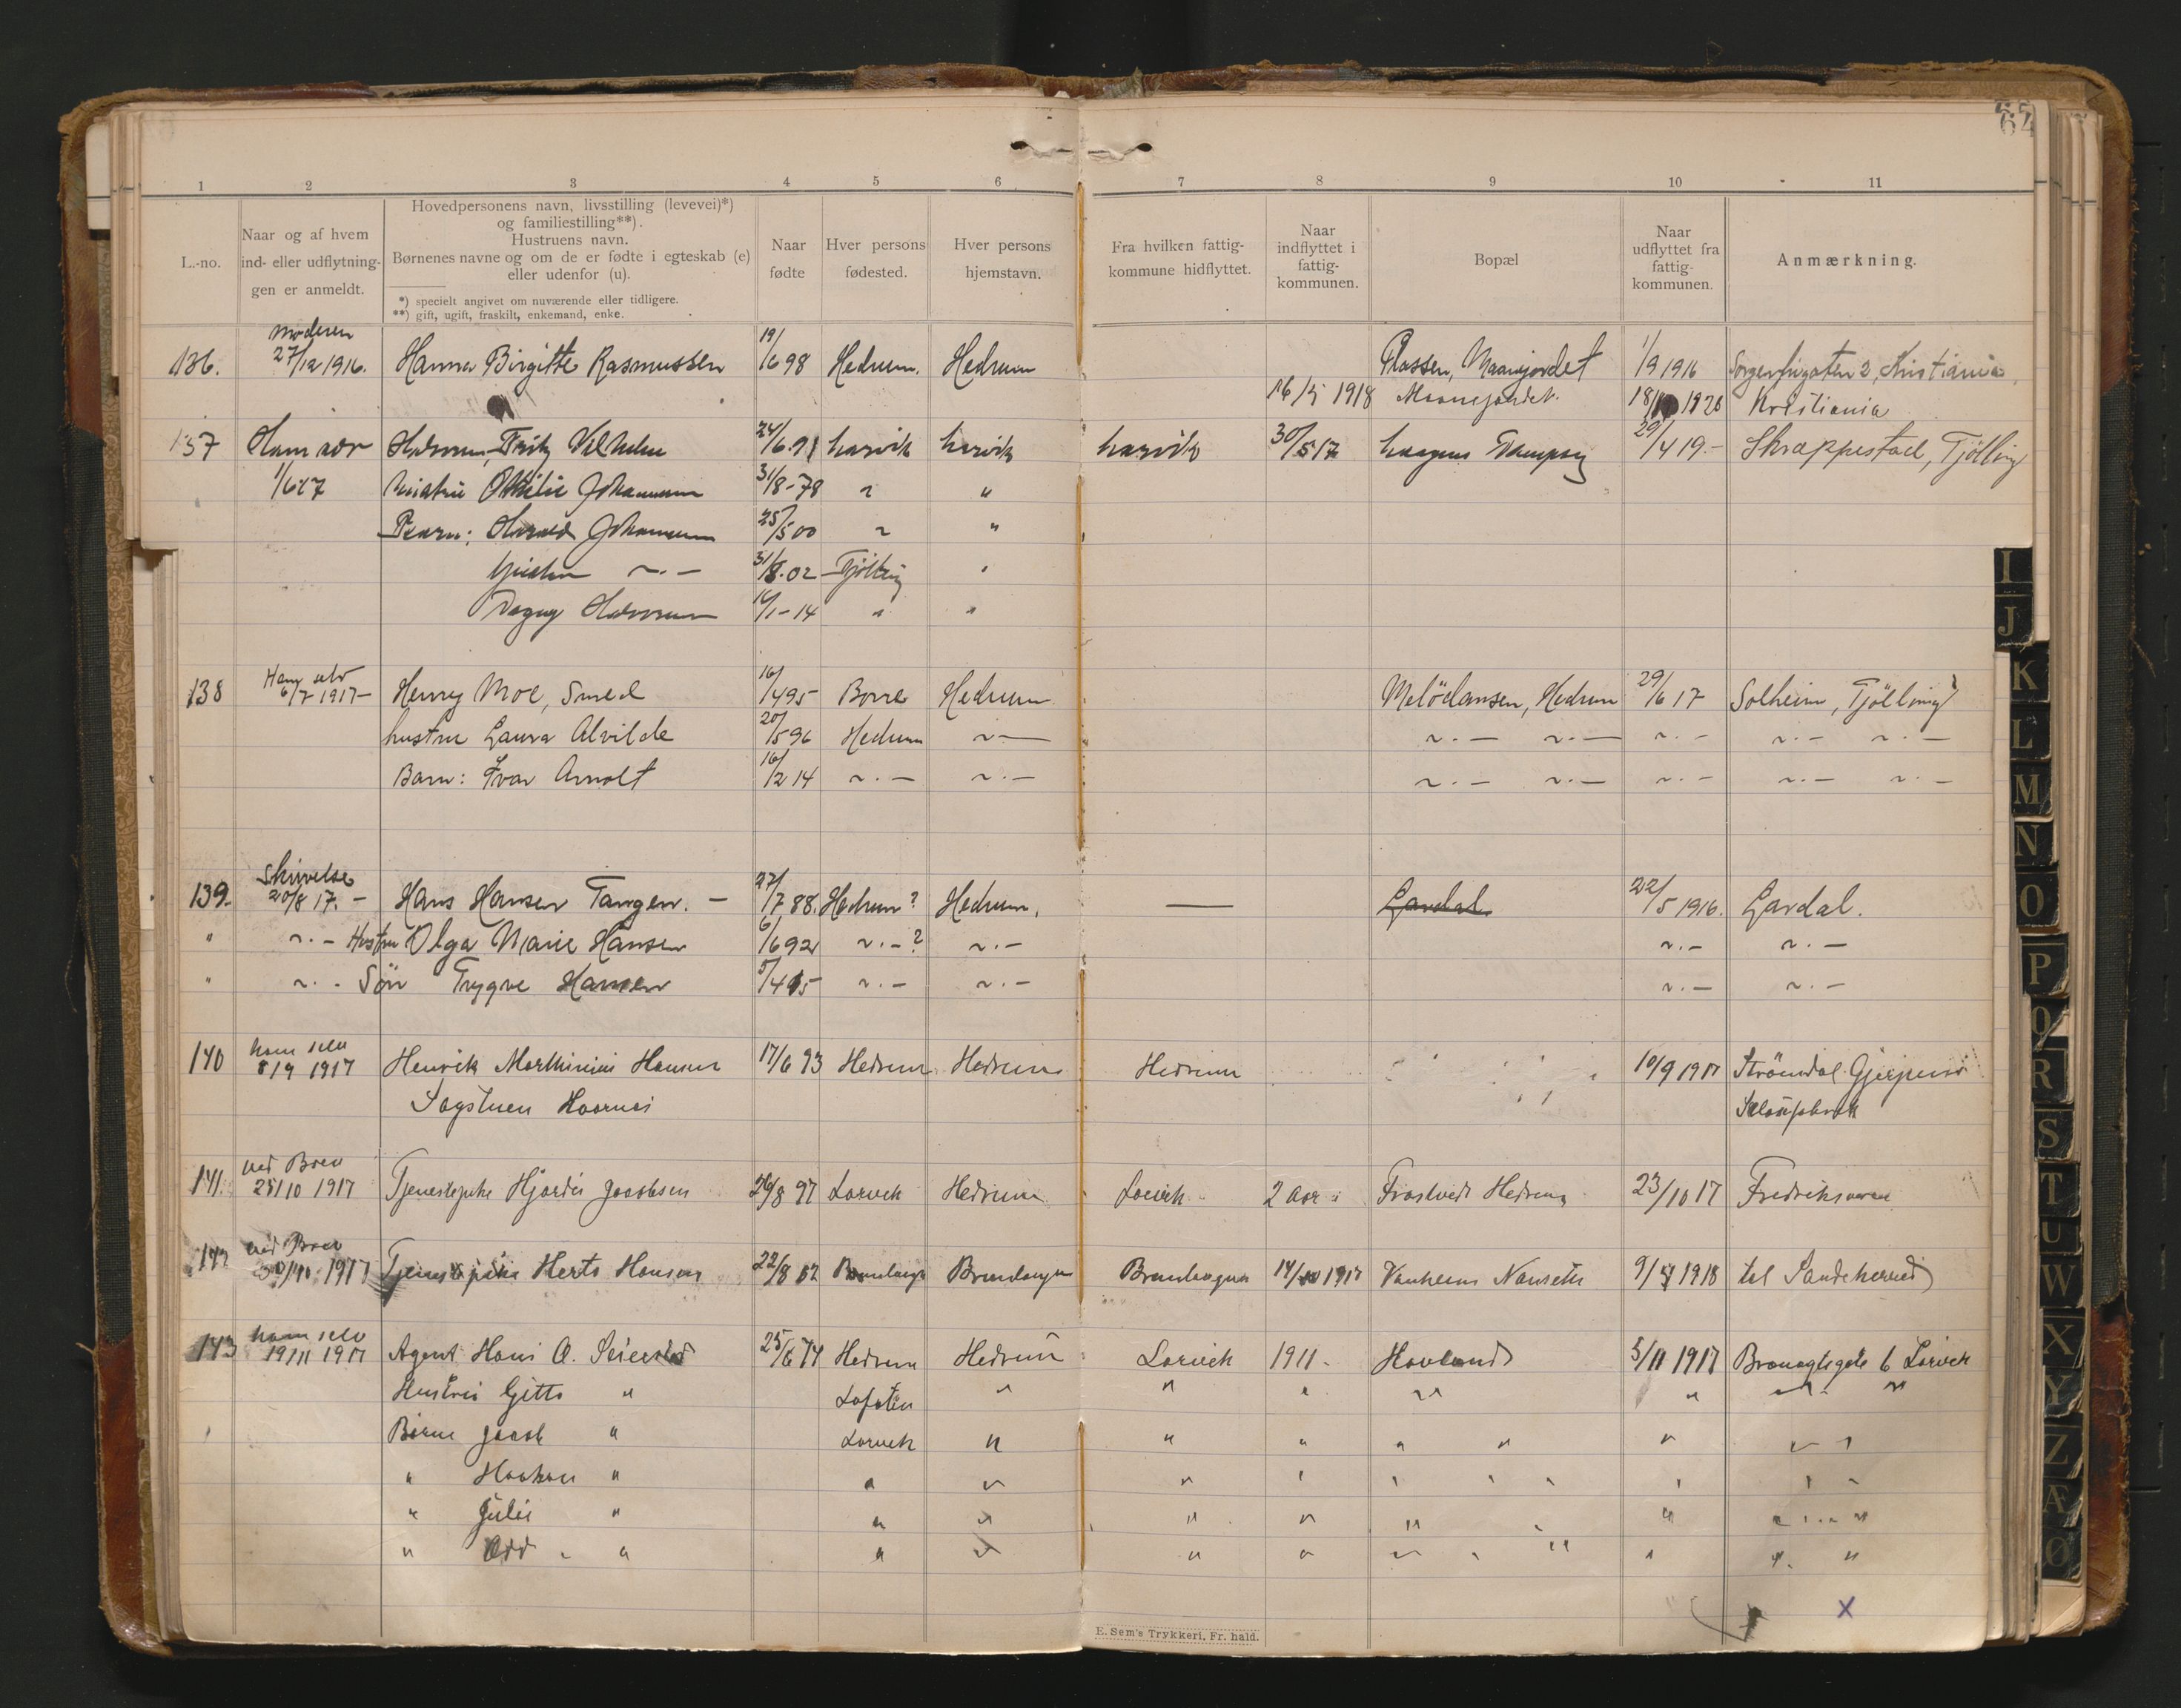 64
1 2 3 4 5 6 7 8 9 10 11
L.-no.
Naar og af hvem
ind- eller udflytnin-
gen er anmeldt.
Hovedpersonens navn, livsstilling (levevei)*)
og familiestilling**).
Hustruens navn.
Børnenes navne og om de er fødte i egteskab (e)
eller udenfor (u).
*) specielt angivet om nuværende eller tidligere.
**) gift, ugift, fraskilt, enkemand, enke.
Naar
fødte
Hver persons
fødested.
Hver persons
hjemstavn.
Fra hvilken fattig-
kommune hidflyttet.
Naar
indflyttet i
fattig-
kommunen.
Bopæl
Naar
udflyttet fra
fattig-
kommunen.
Anmærkning.
Moderen
136. 27/12 1916. Hanna Birgitte Rasmussen 19/6 98 Hedrum. Hedrum Plassen, 1/9 1916 Sorgenfrigaten 2, Kristiania
16/5 1918 1920 Kristiania
137 Fritz Vilhelm 24/6.71 Larvik Larvik Larvik 30/5 17 29/4 19.- Skrappestad, Tjölling
1/6 17 Othilie Johannesen 31/8-78 " "
Barn: Harald Johannesen 25/5 00 " "
31/8.02 Tjölling "
Dagny 1-14 " "
Han selv
138 6/7 1917- Henry Moe, Smed 16/4 95 Borre Hedrum Melödansen, Hedrum 29/6 17 Solheim, Tjölling
hustru Laura Alvilde 20/5 96 Hedrum ~.— ~.— ~.— ~.- ~.— ~.—
Barn: Ivar Arnolt 16/2 14 ~.— ~.— ~.— ~.— ~.- ~.— ~.—
Skrivelse
139. 20/8 17. - Hans Hansen Tangen. - 27/7 88. Hedrum? Hedrum. — Lardal 22/5 1916. Lardal.
" ~.- Hustru Olga Marie Hansen 6/6 92 ~.-? ~.- ~.- ~.—
" ~.- Sön Trygve Hansen 5/4 15 ~.- ~.- ~.- ~.-
ham selv
140 8/9 1917 Henrik Marthinius Hansen 17/6 93 Hedrum Hedrum Hedrum 10/9 1917 Strömdal Gjerpen
Sagstuen
ved Brev
141. 25/10 1917 Tjenestepike Hjördis Jacobsen 26/8 97 Larvik Hedrum Larvik 2 aar Hedrum 23/10 17 Fredriksværn
ved Brev
142 30/10 1917 Tjenestepike Herta Hansen 22/8 02 Brunlanes Brunlanes Brunlanes 1917 Nanset 1918 til Sandeherred
ham selv
143 19/11 1917 Agent Hans A. Seierstad 25/6 74 Hedrum Hedrum Larvik 1911 - Hovland 5/11 1917 6 Larvik
Hustru Gitta " Lofoten " " " " " " "
Börn Jacob " Larvik " " " " " " "
" Haakon " " " " " " " " "
" Julie " " " " " " " " "
" Odd " " " " " " " " "
X
E. Sem's Trykkeri, Fr. hald.
I
J
K
L
M
N
O
P
Q
R
S
T
U
W
X
Y
Z
Æ
Ø